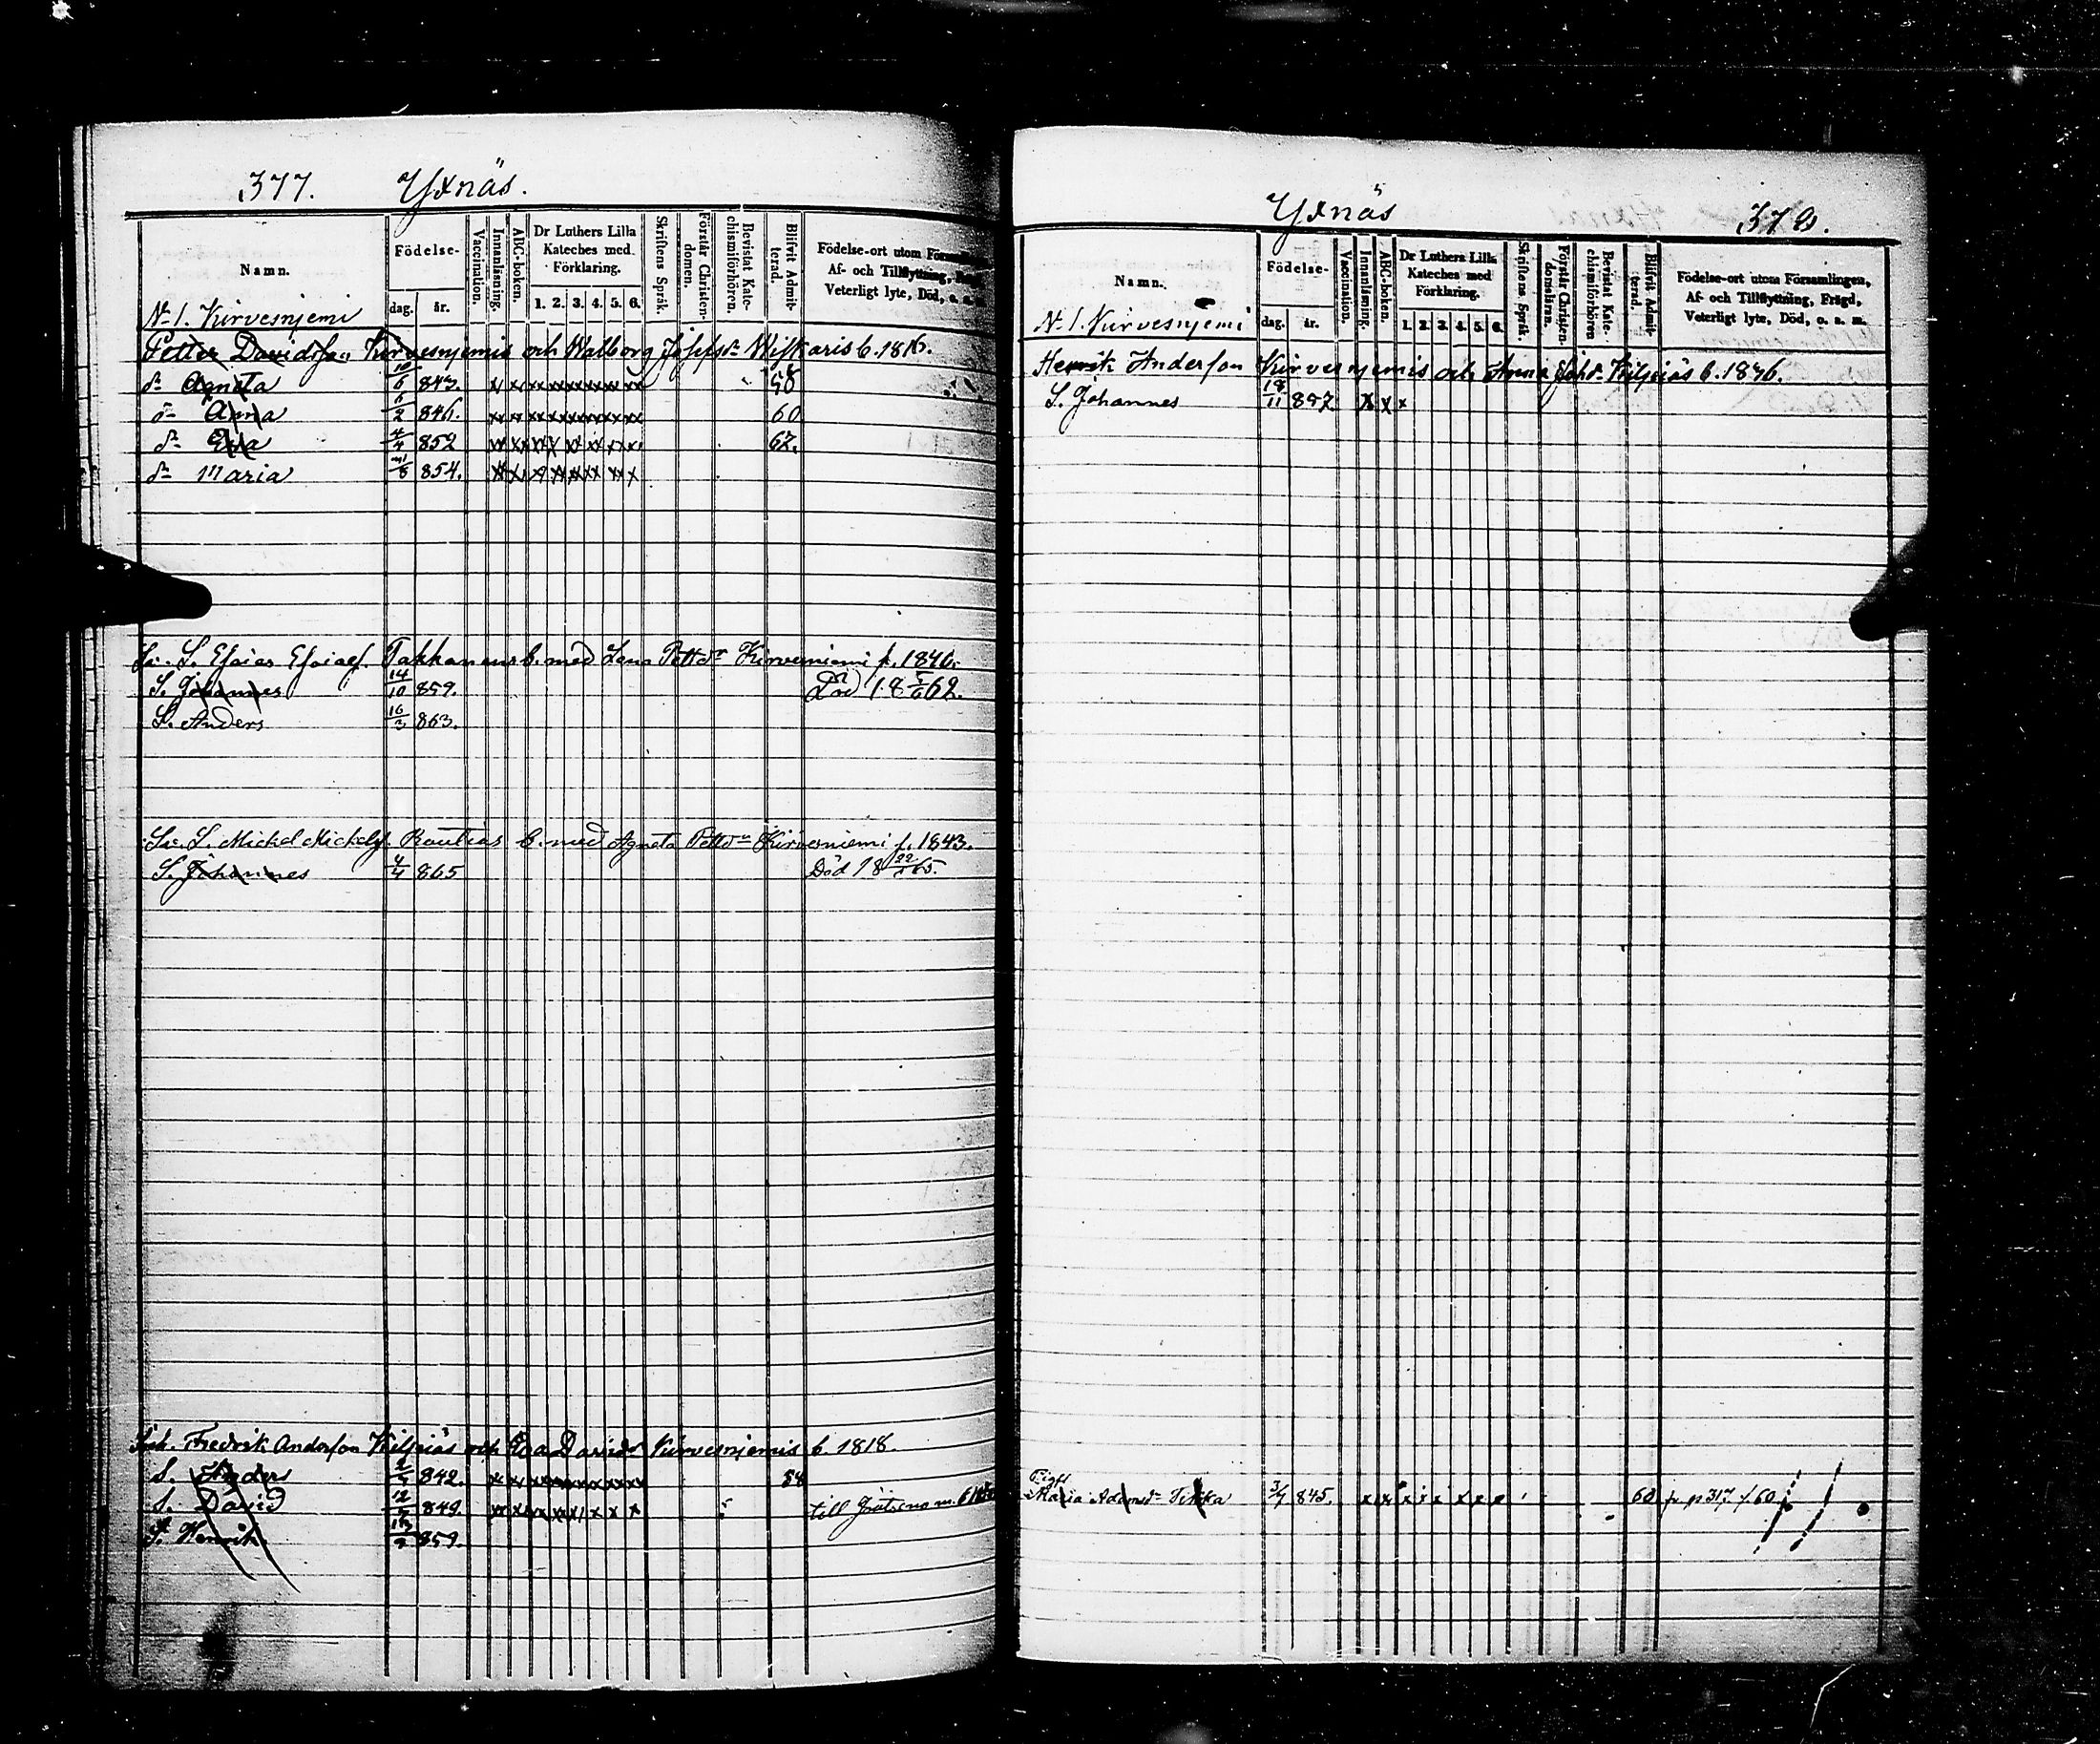 377. Yxnäs.
Namn.
Födelse-
dag. år.
Vaccination.
Innanläsning.
ABC-boken.
Dr Luthers Lilla Kateches med Förklaring.
1. 2. 3. 4. 5. 6.
Skriftens Språk.
Förstår Christendomen.
Bevistat Katechismiförhören.
Blifvit Admitterad.
Födelse-ort utom
Af- och Tillflyttning,
Veterligt lyte, Död, o. s. m.
N-1. Kirvesnjemi
Petter Davidsson Kirvesnjemis och Walborg Josefsdr Wiskaris b. 1816.
dr Agneta 10/6 843. 58
dr Anna 6/2 846. 60
dr Eva 4/4 852 62.
dr Maria 854.
S. Esaias Esaiasf. Pakkanens b. med Lena Pettdr Kirvesniemi f. 1846.
S. Johannes 14/10 859. Död 18 5/6 62.
S. Anders 16/3 863.
S. Mickel Mickelsf. Rautias b. med Agneta Pettdr Kirvesniemi f. 1843.
S. Johannes 4/4 865 Död 18 65.
Fredrik Anderson Kilpiäs och Eva Davidsdr Kirvesnjemis b. 1818.
S. Anders 842. 58
S. David 849. till
S. Henrik 859.
Yxnäs 378.
Namn.
Födelse-
dag. år.
Vaccination.
Innanläsning.
ABC-boken.
Dr Luthers Lilla Kateches med Förklaring.
1. 2. 3. 4. 5. 6.
Skriftens Språk.
Förstår Christendomsläran.
Bevistat Katechismiförhören
Blifvit Admitterad.
Födelse-ort utom Församlingen,
Af- och Tillflyttning, Frägd,
Veterligt lyte, Död, o. s. m.
N-1. Kirvesnjemi
Henrik Anderson Kirvesnjemis och Anna Johdr Kilpiäs b. 1846.
S. Johannes 18/11 857.
Maria Adamsdr Tikka 3/7 845. 60 fr p 317 /60